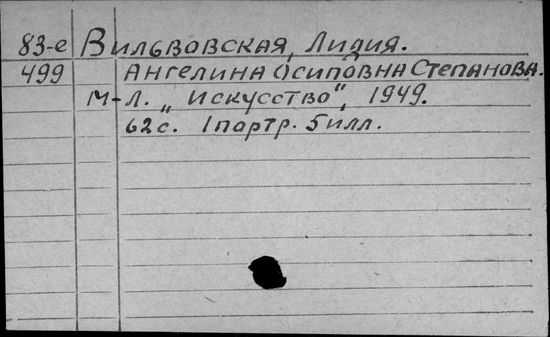 83-е Вильвовская, Лидия.
499 Ангелина Осиповна Степанова.
М-Л. „Искусство", 1949.
62с. 1 портр. 5 илл.